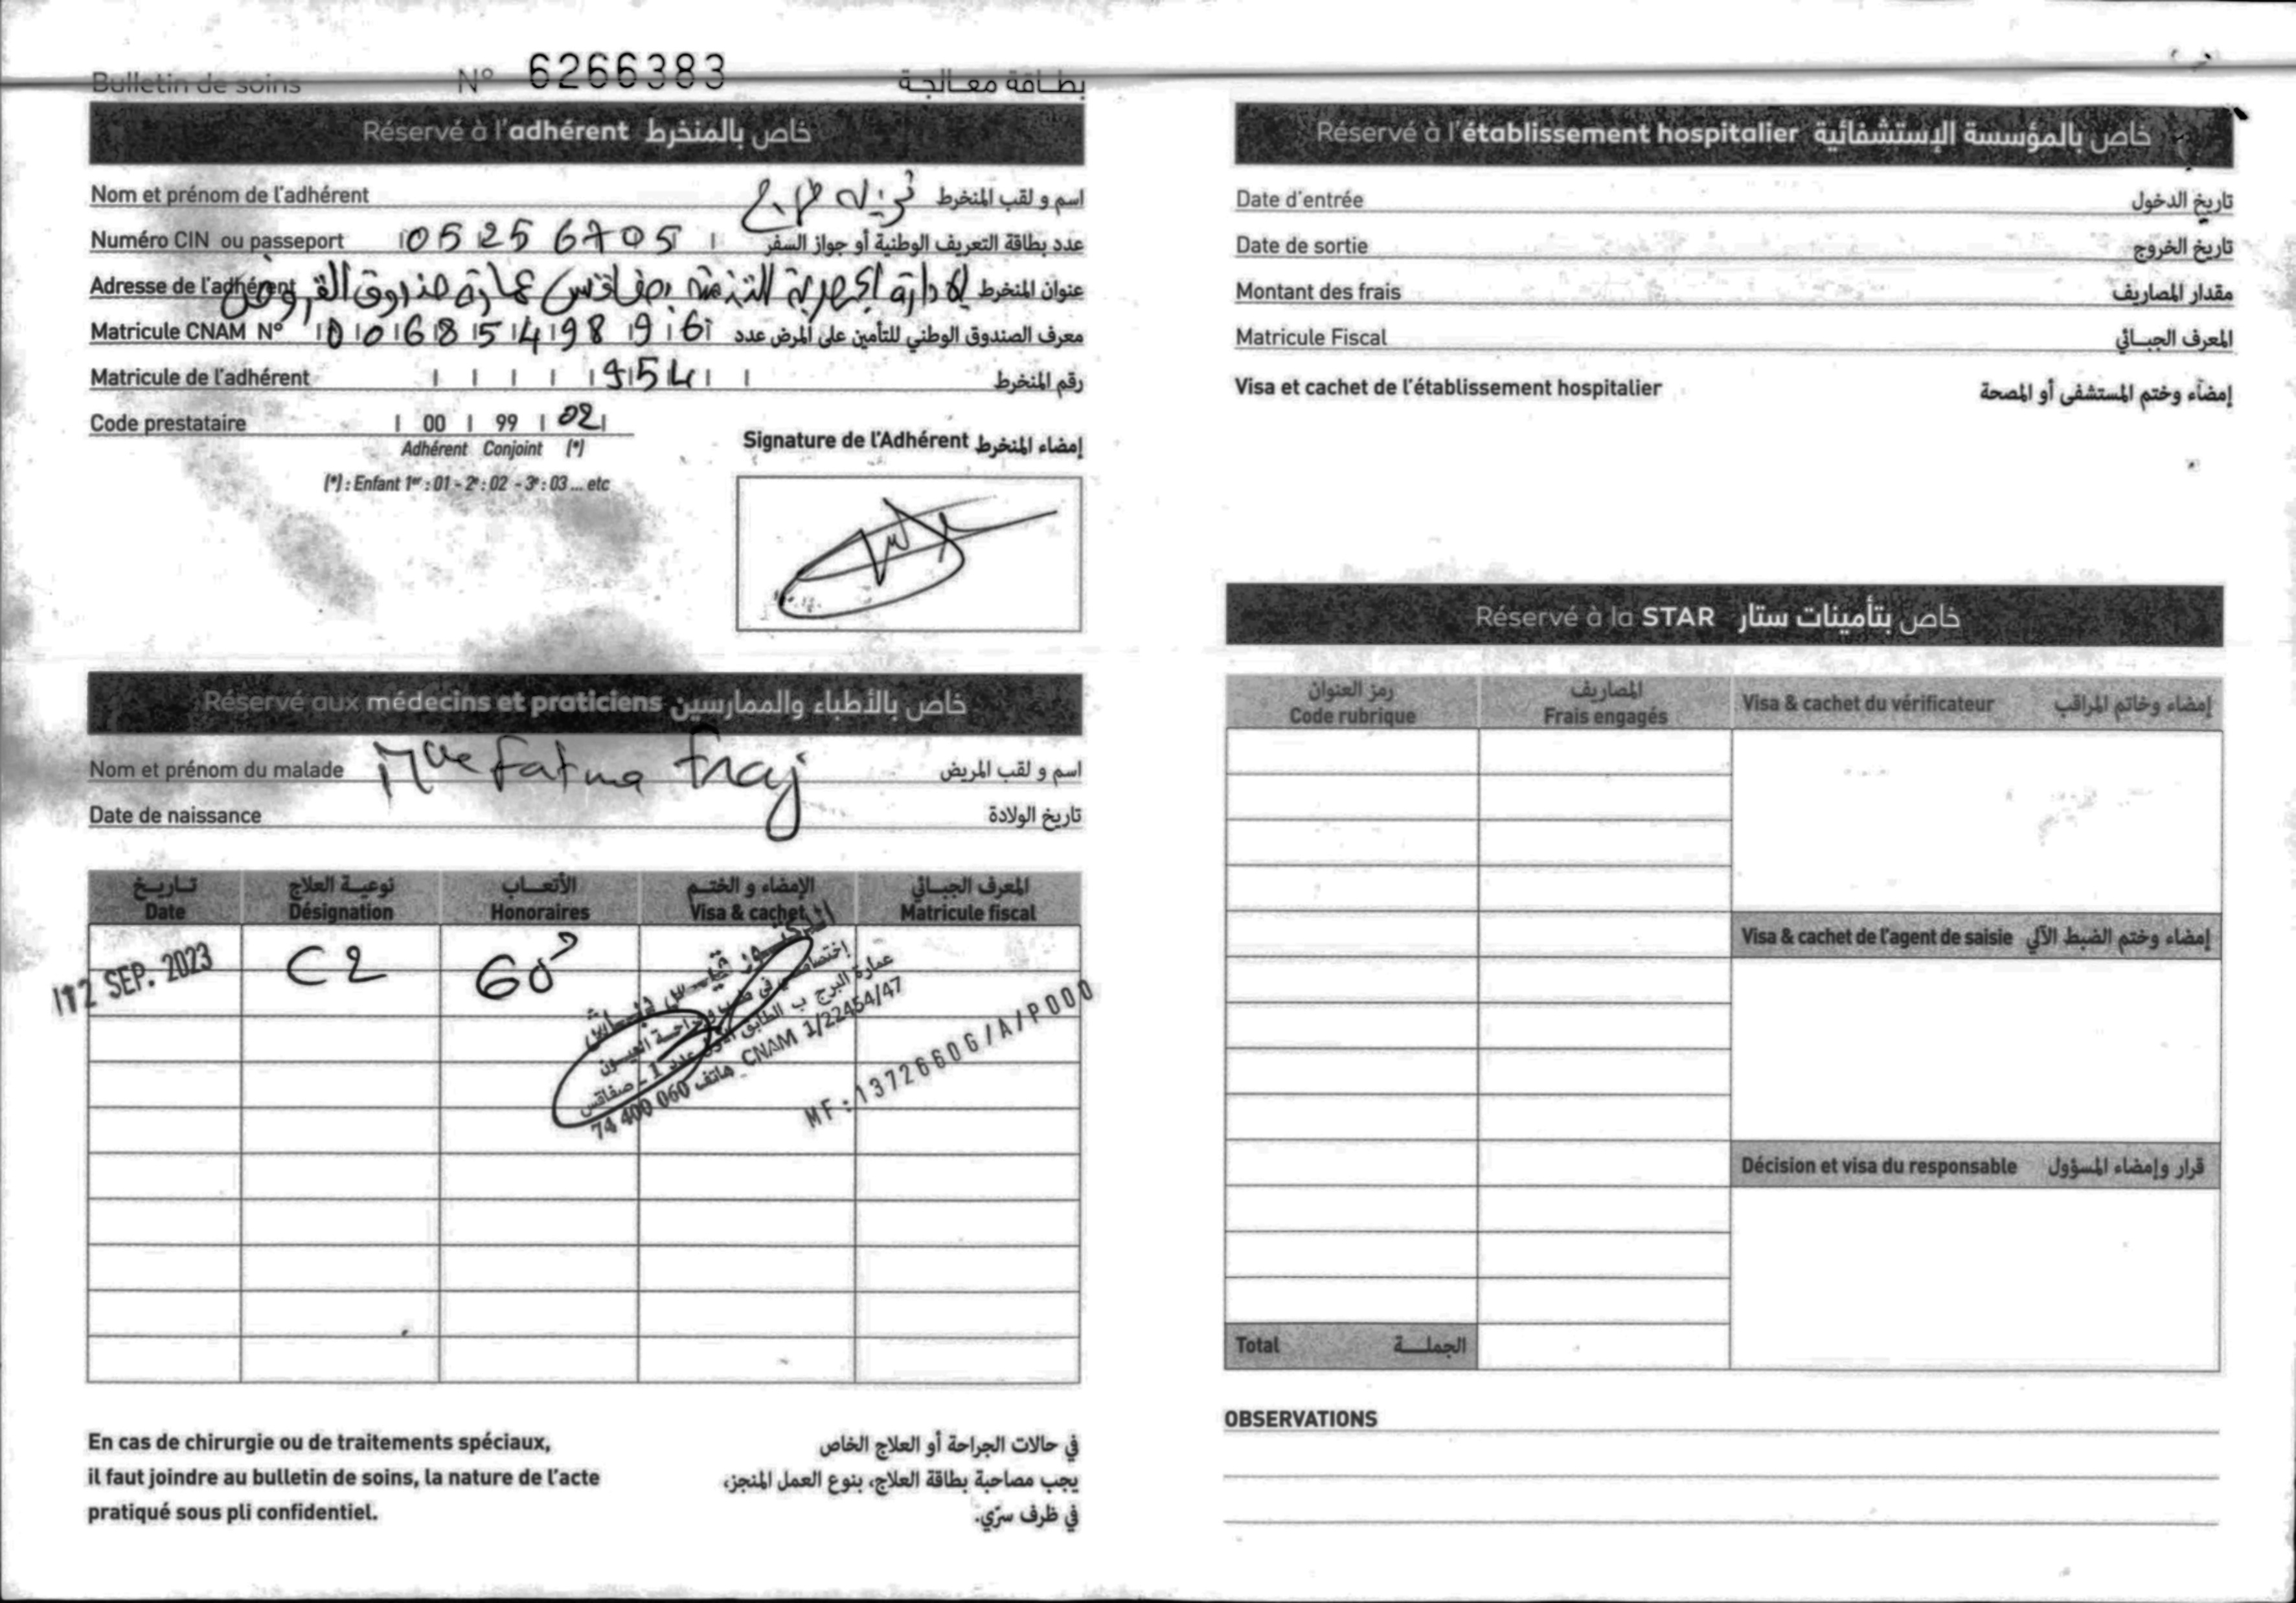 Bulletin de soins N° 6266383 بطاقة معالجة
Réservé à l'adhérent خاص بالمنخرط
Nom et prénom de l'adhérent اسم و لقب المنخرط
Numéro CIN ou passeport 05256705 عدد بطاقة التعريف الوطنية أو جواز السفر
Adresse de l'adhérent الادارة الجهوية للتنمية بصفاقس عمارة صندوق القروض عنوان المنخرط
Matricule CNAM N° معرف الصندوق الوطني للتأمين على المرض عدد
Matricule de l'adhérent 954 رقم المنخرط
Code prestataire 00 99 02
Adhérent Conjoint (*)
(*) : Enfant 1er : 01 - 2e : 02 - 3e : 03 ... etc
Signature de l'Adhérent إمضاء المنخرط
Réservé aux médecins et praticiens خاص بالأطباء والممارسين
Nom et prénom du malade Mlle Fatma Fraj اسم و لقب المريض
Date de naissance تاريخ الولادة
تاريخ نوعية العلاج الأتعاب الإمضاء و الختم المعرف الجبائي
Date Désignation Honoraires Visa & cachet Matricule fiscal
12 SEP. 2023 C2 60
إختصاصي في طب وجراحة العيون
عمارة البرج ب الطابق الأول عدد 1 - صفاقس
74 400 060 هاتف - CNAM 1/22454/47
MF : 1372660G/A/P000
En cas de chirurgie ou de traitements spéciaux,
il faut joindre au bulletin de soins, la nature de l'acte
pratiqué sous pli confidentiel.
في حالات الجراحة أو العلاج الخاص
يجب مصاحبة بطاقة العلاج، بنوع العمل المنجز،
في ظرف سرّي.
Réservé à l'établissement hospitalier خاص بالمؤسسة الإستشفائية
Date d'entrée تاريخ الدخول
Date de sortie تاريخ الخروج
Montant des frais مقدار المصاريف
Matricule Fiscal المعرف الجبائي
Visa et cachet de l'établissement hospitalier إمضاء وختم المستشفى أو المصحة
Réservé à la STAR خاص بتأمينات ستار
رمز العنوان المصاريف
Code rubrique Frais engagés
Visa & cachet du vérificateur إمضاء وخاتم المراقب
Visa & cachet de l'agent de saisie إمضاء وختم الضبط الآلي
Décision et visa du responsable قرار وإمضاء المسؤول
Total الجملة
OBSERVATIONS